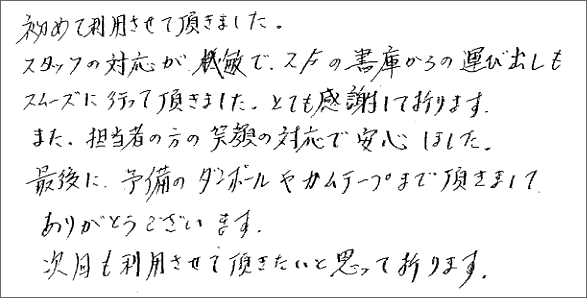 初めて利用させて頂きました。
スタッフの対応が機敏で、2Fの書庫からの運び出しも
スムーズに行って頂きました。とても感謝して折ります。
また、担当者の方の笑顔の対応で安心しました。
最後に、予備のダンボールやガムテープまで頂きまして
ありがとうございます。
次回も利用させて頂きたいと思って折ります。